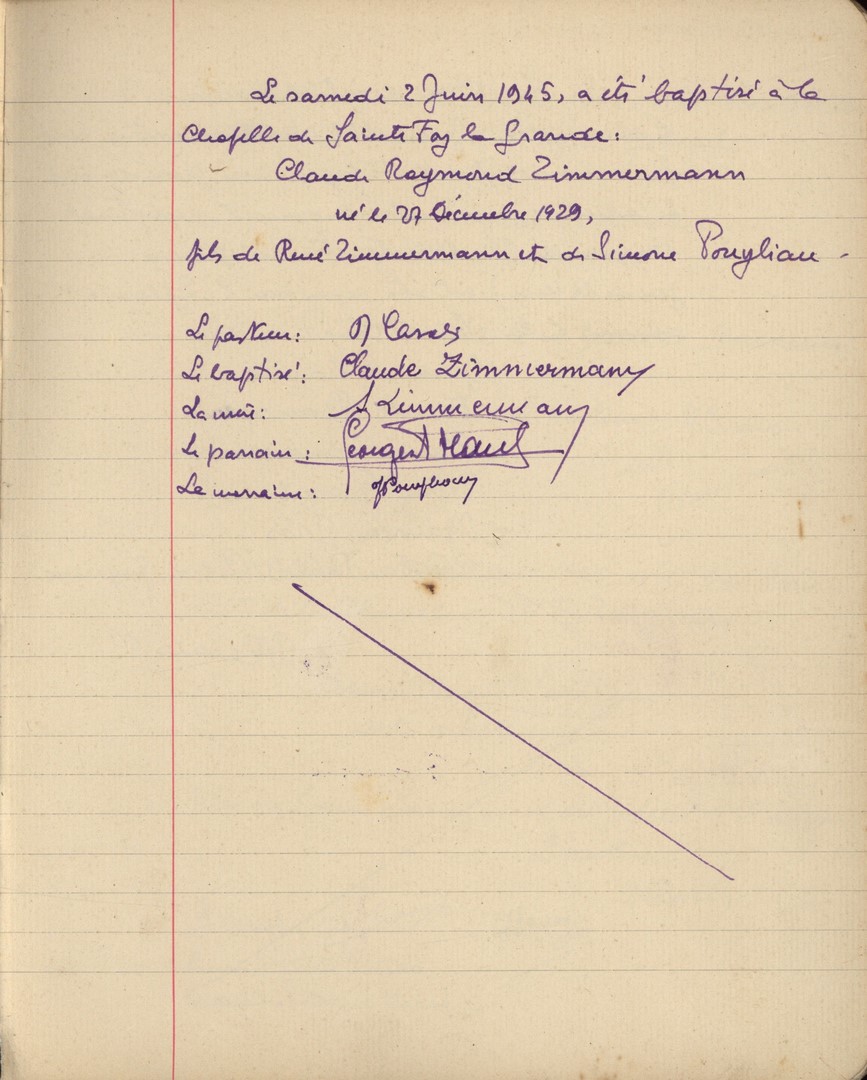 Le samedi 2 Juin 1945, a été baptisé à la
Chapelle de Sainte Foy la Grande :
Claude Raymond Zimmermann
né le 27 Décembre 1929,
fils de René Zimmermann et de Simone
Le pasteur :
Le baptisé : Claude Zimmermann
La mère : S Zimmermann
Le parrain : Georges
La marraine :